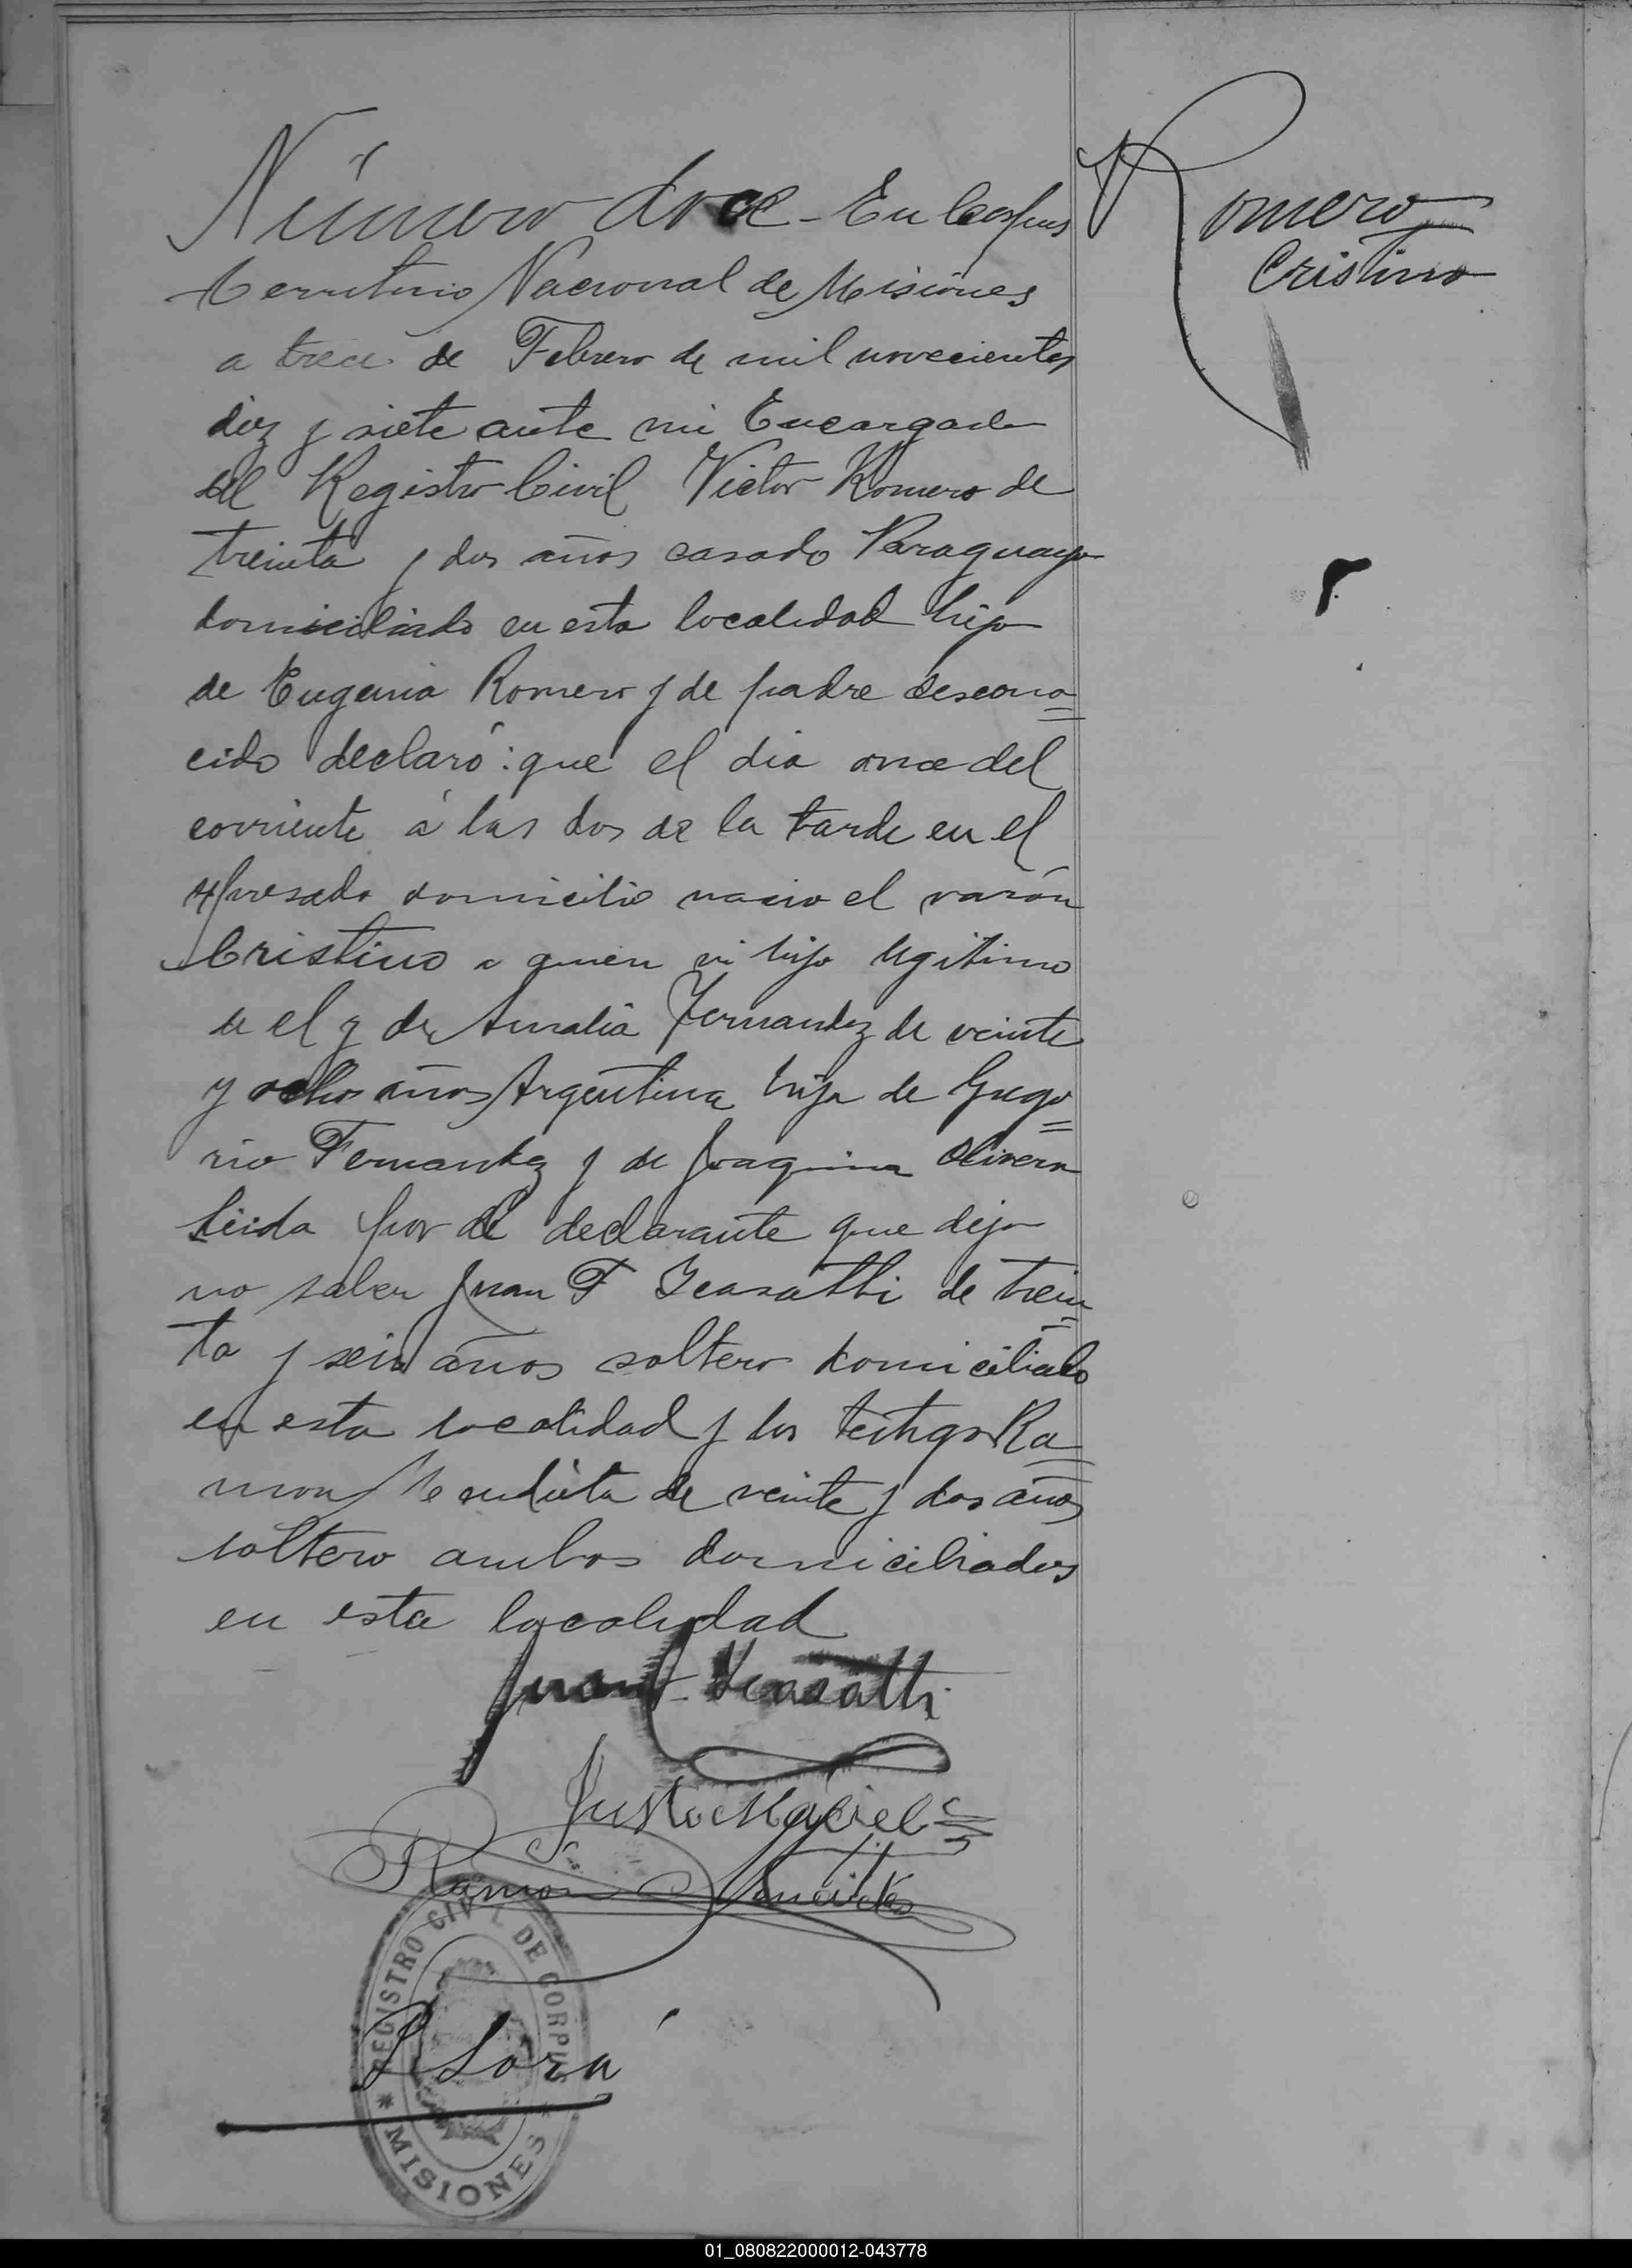 Número doce - En Corpus
Territorio Nacional de Misiones
a trece de Febrero de mil novecientos
diez y siete ante mi Encargado
del Registro Civil Victor Romero de
treinta y dos años casado Paraguayo
domiciliado en esta localidad hijo
de Eugenia Romero y de padre descono=
cido declaró: que el dia once del
corriente á las dos de la tarde en el
expresado domicilio nacio el varón
Cristino a quien vi hijo legitimo
de el y de Amalia Fernandez de veinte
y ocho años Argentina hija de Grego=
rio Fernandez y de Joaquina Olivera
leida por el declarante que dijo
no saber Juan F de trein=
ta y seis años soltero domiciliado
en esta localidad y los testigos Ra=
mon de veinte y dos años
soltero ambos domiciliados
en esta localidad
Juan F.
Justo Maciel
Ramon
REGISTRO CIVIL DE CORPUS
* MISIONES *
Romero
Cristino
01_080822000012-043778